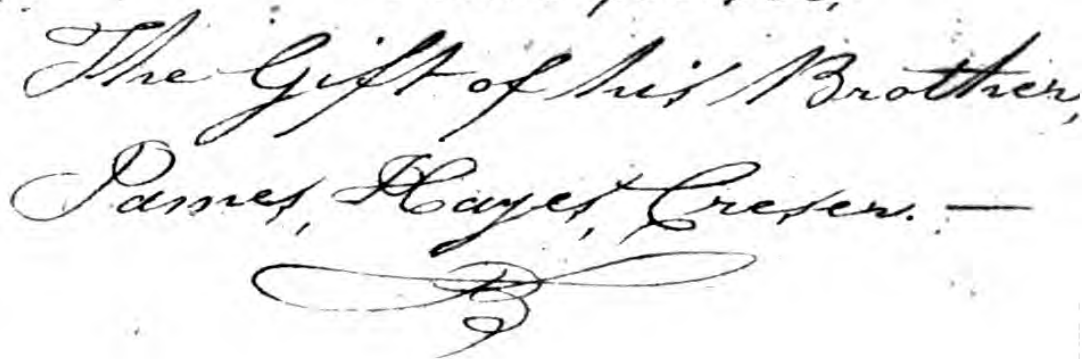 The Gift of his Brother,
James, Hayes, Creser. —